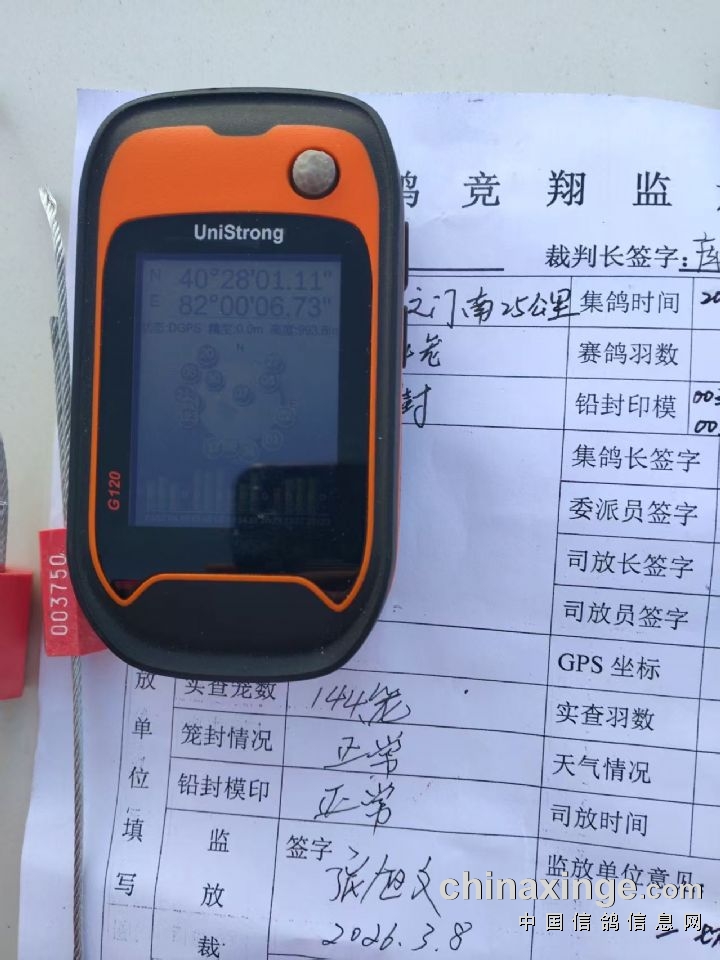 鸽竞翔监
UniStrong
裁判长签字:库
N 40°28'01.11"
E 82°00'06.73"
状态:DGPS 精度:0.0m 高度:993.8m
之门南25公里
集鸽时间
20
笼
赛鸽羽数
封
铅封印模
集鸽长签字
委派员签字
G120
司放长签字
003750
司放员签字
GPS 坐标
放
实查笼数
144笼
实查羽数
单
笼封情况
正常
天气情况
位
铅封模印
正常
司放时间
填
监
签字
监放单位意见
写
放
张旭文
裁
2026.3.8
chinaxinge.com
中国信鸽信息网